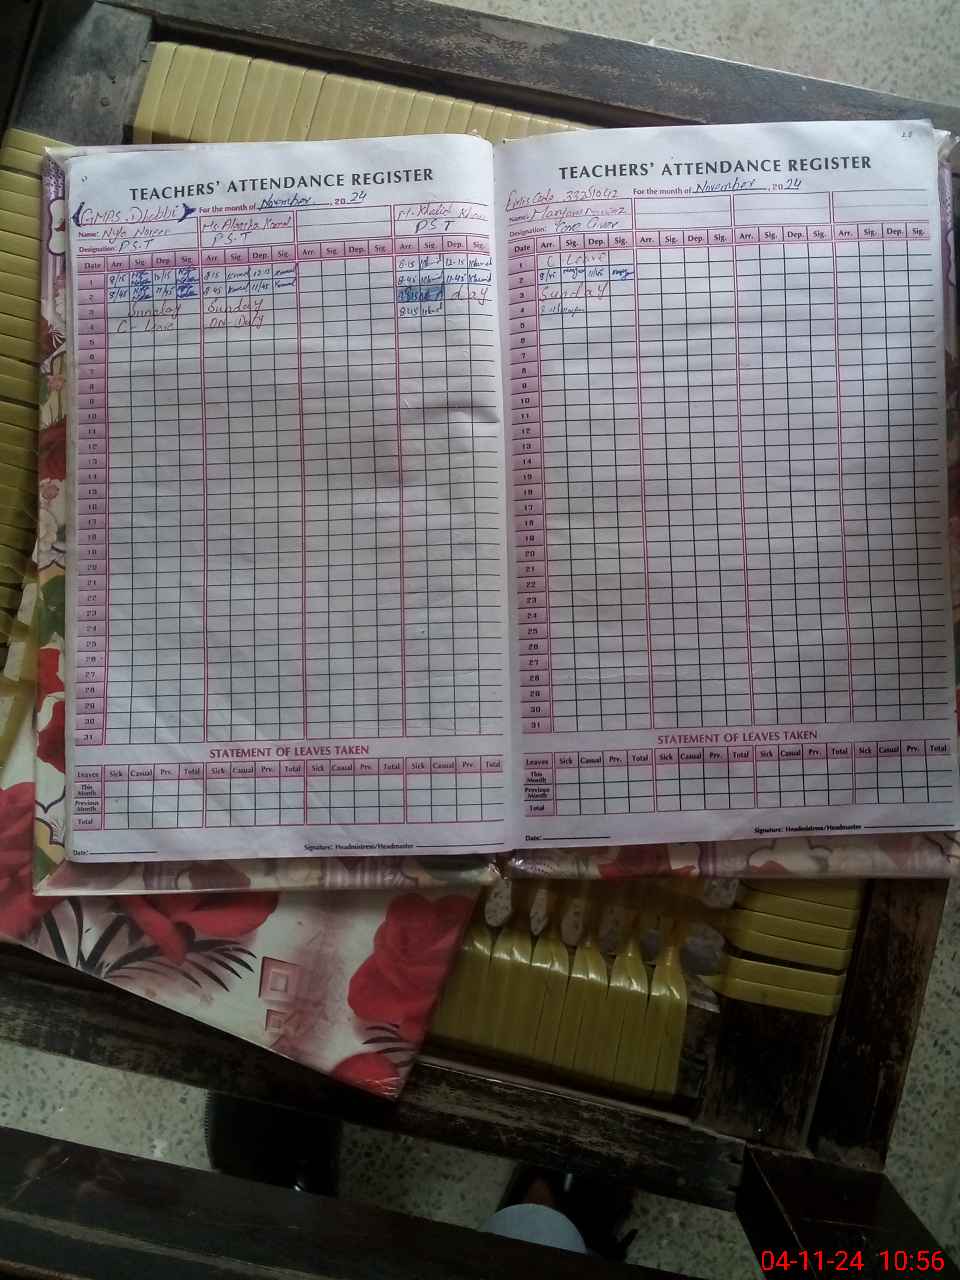 TEACHERS' ATTENDANCE REGISTER
GMPS Dhebbi For the month of November, 2024
Name: Nyla
Designation: P.S.T
P.S.T
M. Khalid
P.S.T
Date Arr. Sig. Dep. Sig. Arr. Sig. Dep. Sig. Arr. Sig. Dep. Sig. Arr. Sig. Dep. Sig.
1 8/15 12/15 8:15 12:15 8:15 12:15
2 8/45 11/45 8:45 11/45 8:45 11:45
3 Sunday Sunday day
4 C-Leave ON-Duty 8:45
5
6
7
8
9
10
11
12
13
14
15
16
17
18
19
20
21
22
23
24
25
26
27
28
29
30
31
STATEMENT OF LEAVES TAKEN
Leaves Sick Casual Prv. Total Sick Casual Prv. Total Sick Casual Prv. Total Sick Casual Prv. Total
This Month
Previous Month
Total
Date: Signature: Headmistress/Headmaster
TEACHERS' ATTENDANCE REGISTER
Emis Code For the month of November, 2024
Name: Maryam
Designation: Care Giver
Date Arr. Sig. Dep. Sig. Arr. Sig. Dep. Sig. Arr. Sig. Dep. Sig. Arr. Sig. Dep. Sig.
1 C Leave
2 8/45 11/45
3 Sunday
4
5
6
7
8
9
10
11
12
13
14
15
16
17
18
19
20
21
22
23
24
25
26
27
28
29
30
31
STATEMENT OF LEAVES TAKEN
Leaves Sick Casual Prv. Total Sick Casual Prv. Total Sick Casual Prv. Total Sick Casual Prv. Total
This Month
Previous Month
Total
Date: Signature: Headmistress/Headmaster
04-11-24 10:56